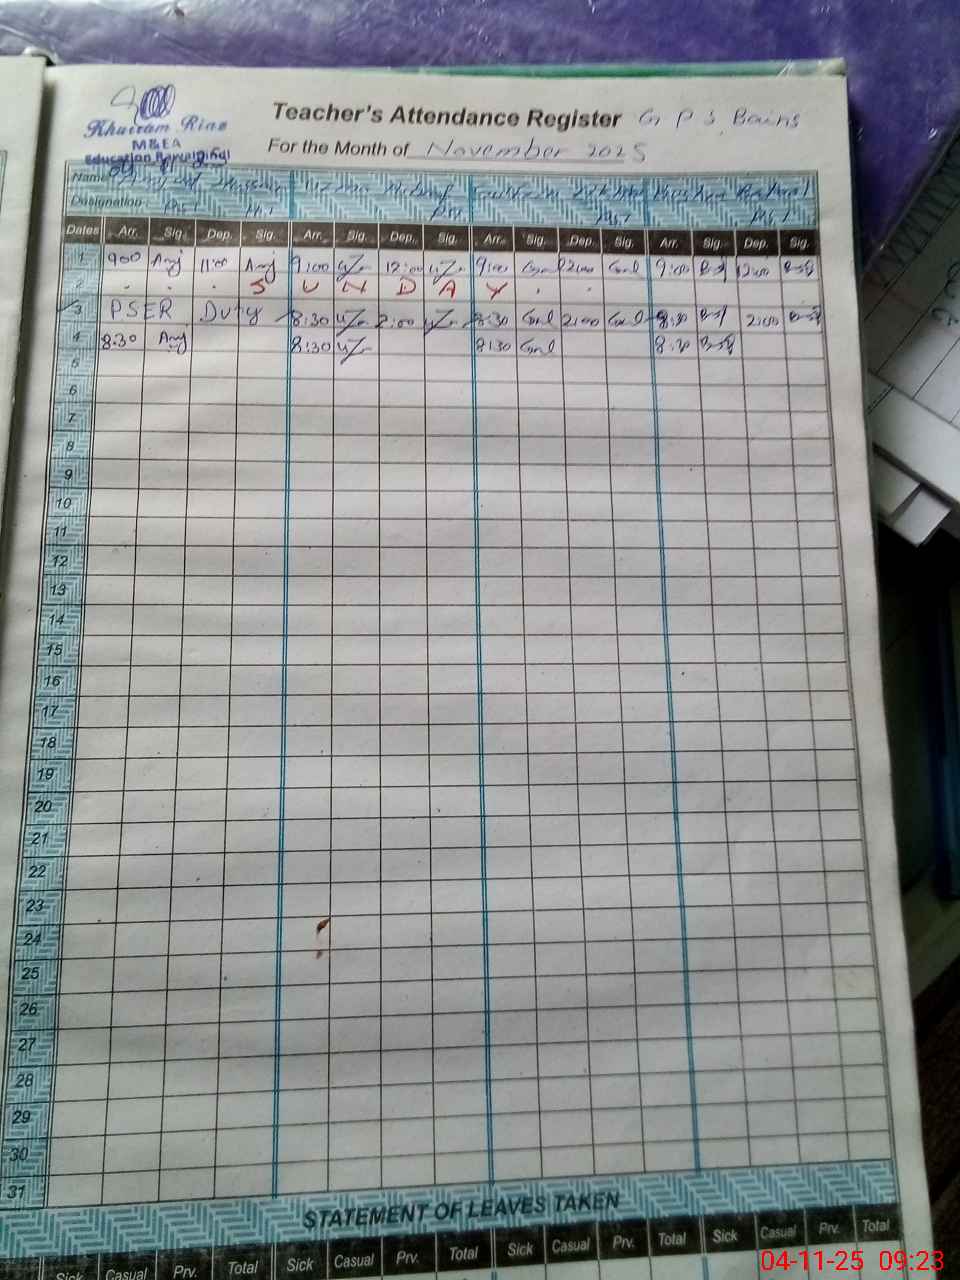 Khurram Riaz
M&EA
Education Rawalpindi
Teacher's Attendance Register G P S Bains
For the Month of November 2025
Name
Designation: PST
Dates Arr. Sig. Dep. Sig. Arr. Sig. Dep. Sig. Arr. Sig. Dep. Sig. Arr. Sig. Dep. Sig.
1 9:00 11:00 9:00 12:00 9:00 12:00 9:00 12:00
2 S U N D A Y
3 PSER Duty 8:30 2:00 8:30 2:00 8:30 2:00
4 8:30 8:30 8:30 8:30
5
6
7
8
9
10
11
12
13
14
15
16
17
18
19
20
21
22
23
24
25
26
27
28
29
30
31
STATEMENT OF LEAVES TAKEN
Sick Casual Prv. Total Sick Casual Prv. Total Sick Casual Prv. Total Sick Casual Prv. Total
04-11-25 09:23